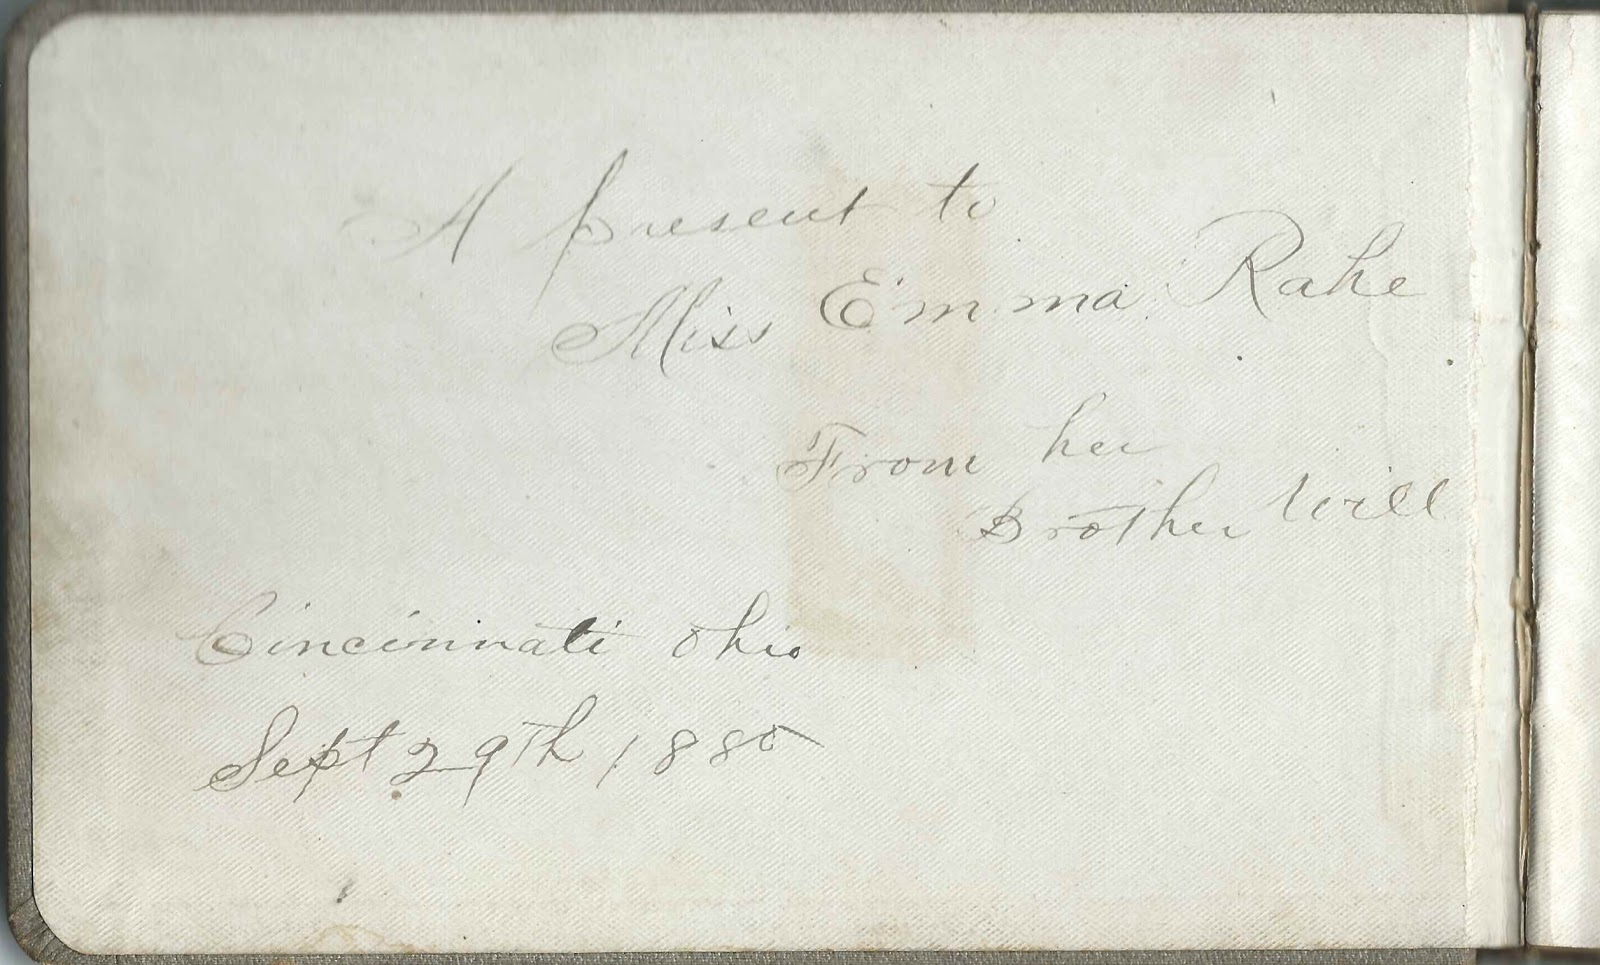 A present to
Miss Emma Rahe
From her
Brother Will
Cincinnati Ohio
Sept 29th 1880